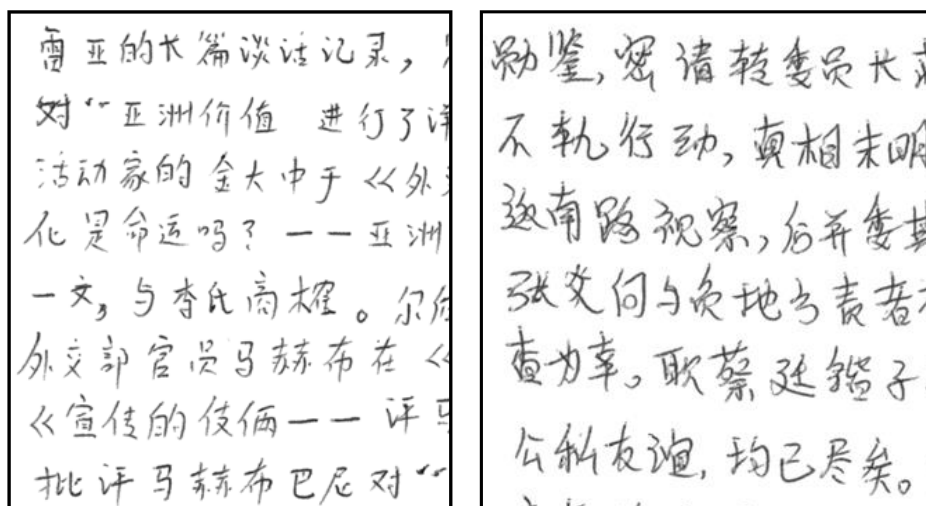 雷亚的长篇谈话记录，
对“亚洲价值 进行了详
活动家的金大中于《外
化是命运吗？——亚洲
一文，与李氏商榷。尔
外交部官员马赫布在《
《宣传的伎俩——评马
批评马赫布巴尼对“
勋鉴，密请转委员长蒋
不轨行动，真相未明
返南路视察，后并委其
张炎何与负地方责者
查为幸。耿蔡廷锴子
公私友谊，均已尽矣。